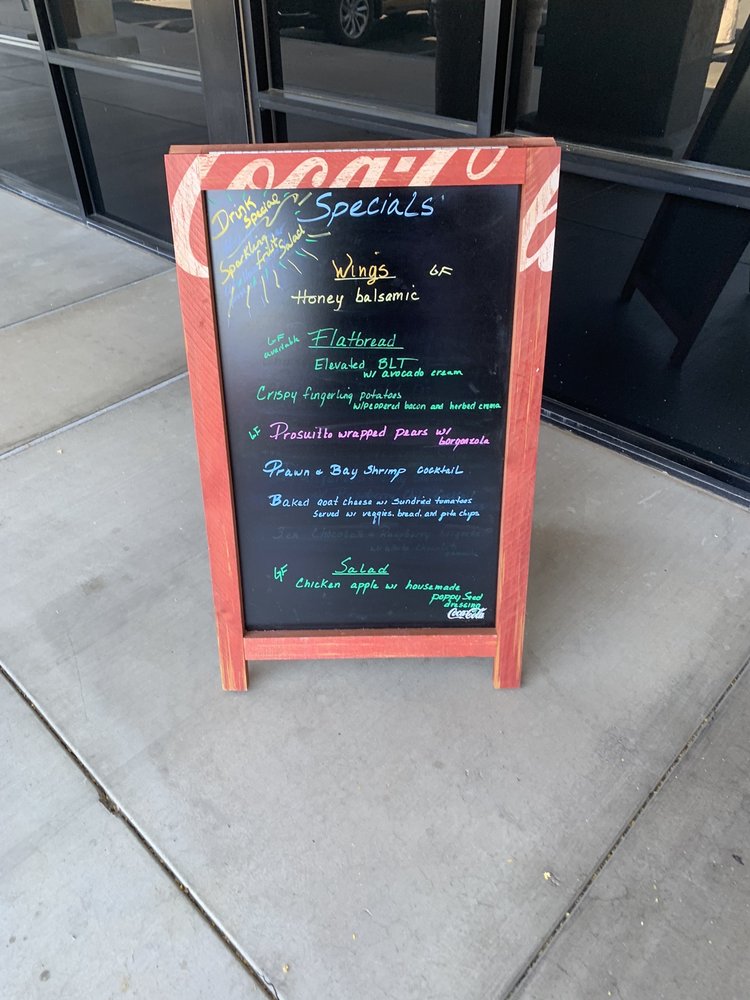 Coca-Co
Drink
Special
Sparkling
fruit Salad
Specials
Wings GF
Honey balsamic
GF
available
Flatbread
Elevated BLT
w/ avocado cream
Crispy fingerling potatoes
w/peppered bacon and herbed crema
GF Prosuitto wrapped pears w/
borgonzola
Prawn & Bay Shrimp cocktail
Baked goat cheese w/ sundried tomatoes
Served w/ veggies, bread, and pita chips
Chocolate & Raspberry
w/ white chocolate
GF
Salad
Chicken apple w/ housemade
poppy seed
dressing
Coca-Cola